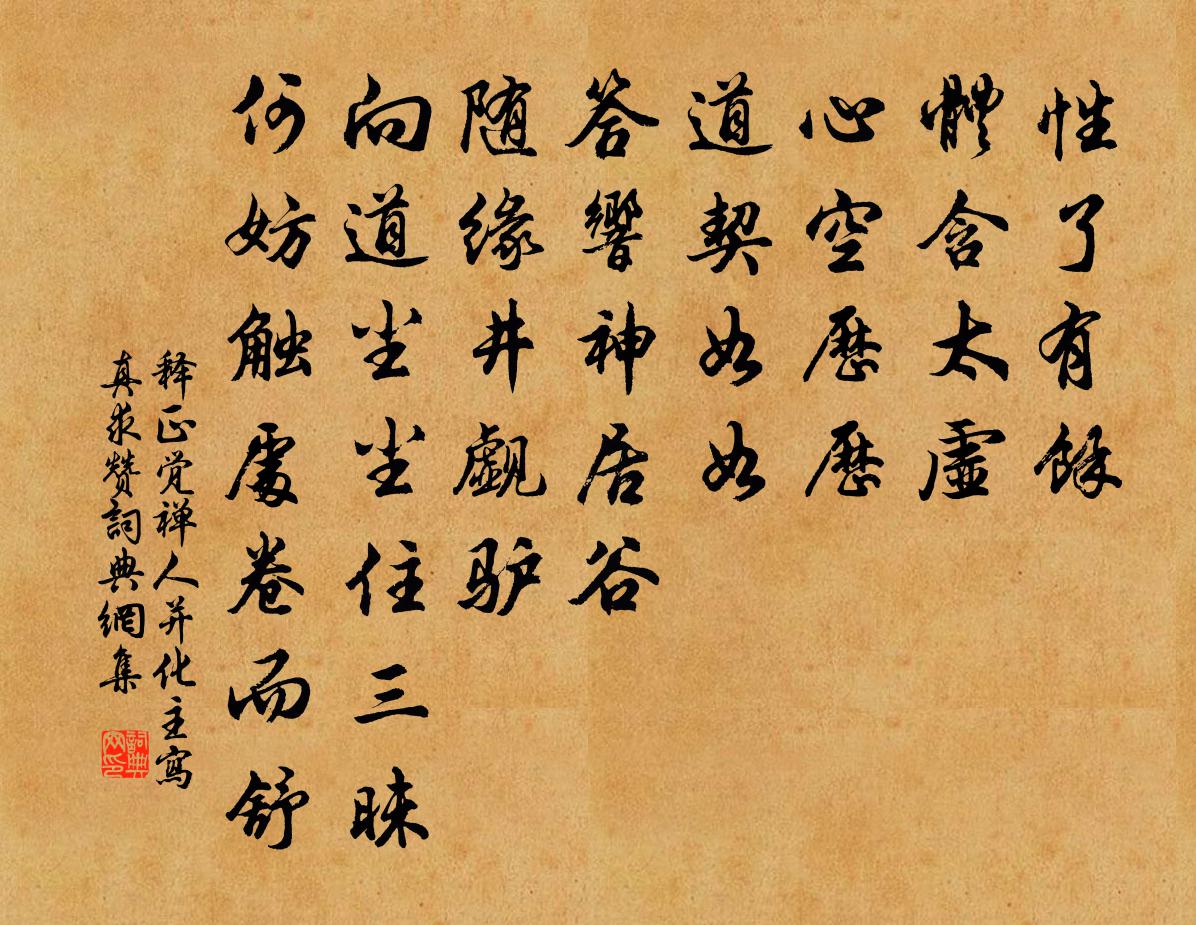 性了有餘
體含太虛
心空歷歷
道契如如
答響神居谷
随緣井觑驴
向道尘尘住三昧
何妨触處卷而舒
释正觉禅人并化主寫
真求赞詞典網集
詞典網印